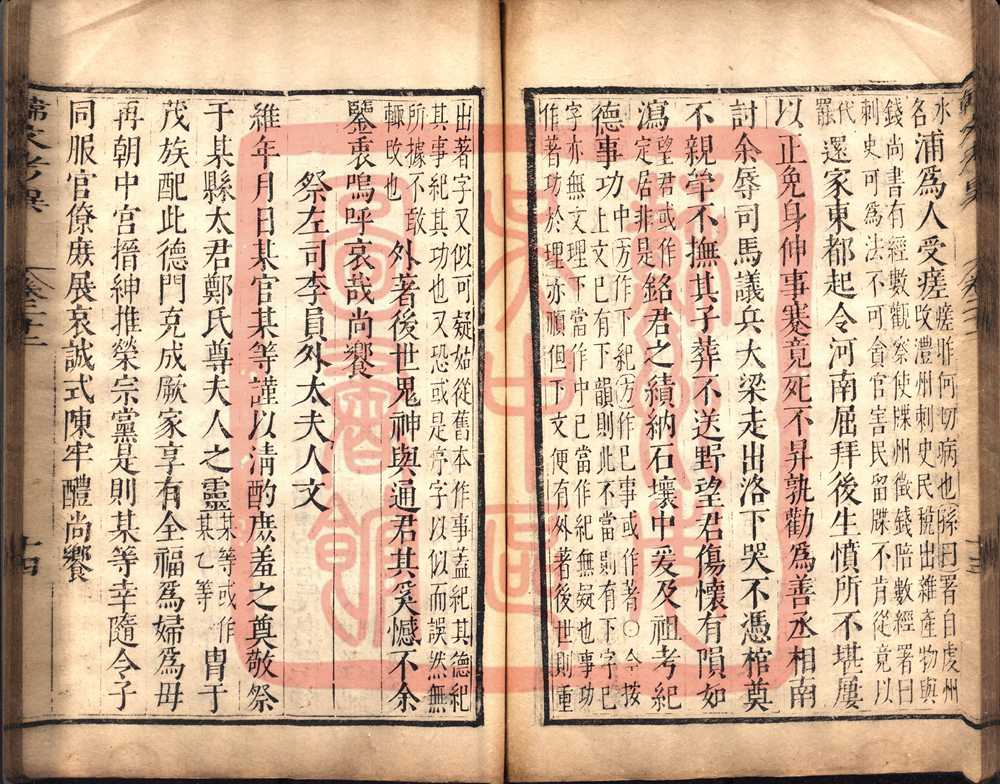 水名浦為人受瘥瘥非何切病也孫曰署自虔州
改澧州刺史民稅出雜產物與
錢尚書有經數觀察使牒州徵錢陪數經署曰
刺史可為法不可貪官害民留牒不肯從竟以
代罷還家東都起令河南屈拜後生憤所不堪屢
以正免身伸事蹇竟死不昇孰勸為善丞相南
討余辱司馬議兵大梁走出洛下哭不憑棺奠
不親斝不撫其子葬不送野望君傷懷有隕如
瀉望君或作定居非是銘君之績納石壤中爰及祖考紀
德事功中方作下紀方作巳事或作著〇今按
上文巳有下韻則此不當則有下字巳
字亦無文理下當作中巳當作紀無疑也事功
作著功於理亦順但下文便有外著後世則重
出著字又似可疑如從舊本作事蓋紀其德紀
其事紀其功也又恐或是序字以似而誤然無
所據不敢輒改也外著後世鬼神與通君其奚憾不余
鑒衷嗚呼哀哉尚饗
祭左司李員外太夫人文
維年月日某官某等謹以清酌庶羞之奠敬祭
于某縣太君鄭氏尊夫人之靈某等或作某乙等胄于
茂族配此德門克成厥家享有全福為婦為母
再朝中宮搢紳推榮宗黨是則某等幸隨令子
同服官僚庶展哀誠式陳牢醴尚饗
韓文考異 卷二十二 十四